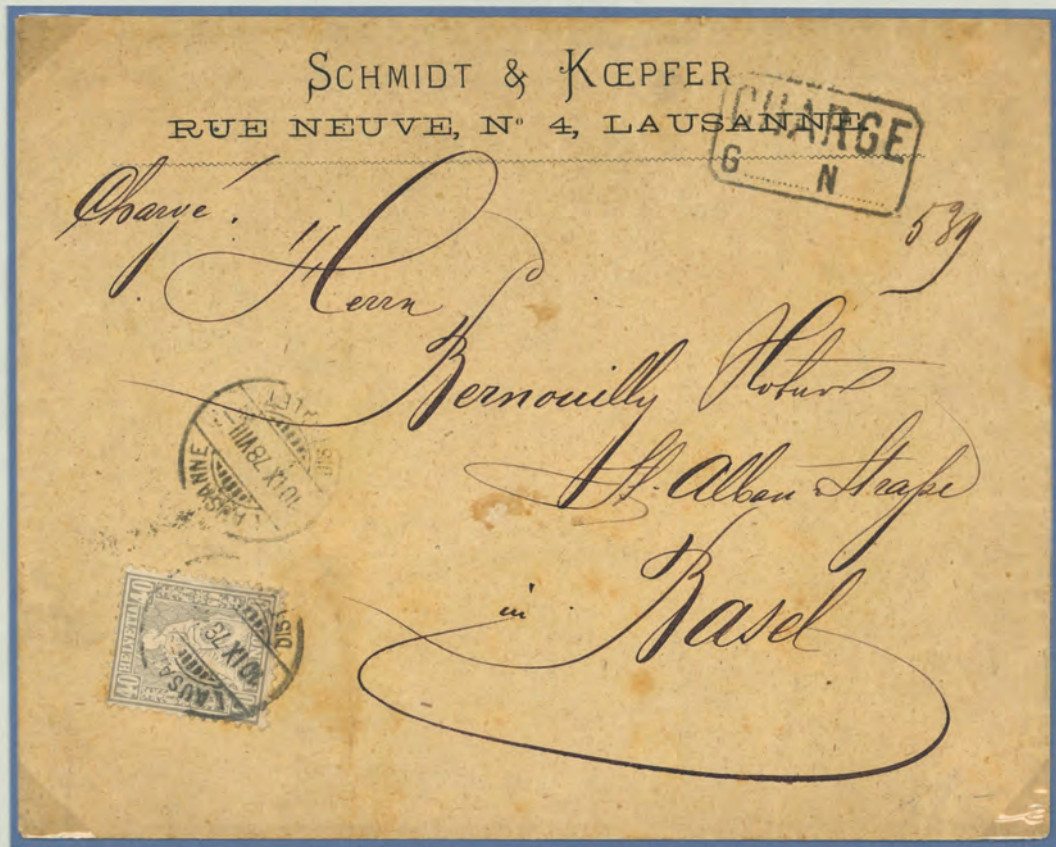 SCHMIDT & KŒPFER
RUE NEUVE, Nº 4, LAUSANNE
CHARGE
G N
Chargé.
539
Herrn
Bernouilly Notar
St. Alban Straße
in Basel
LAUSANNE 10 IX 78 VIII DIST. LET
40 HELVETIA 40
LAUSA 10 IX 78 DIST